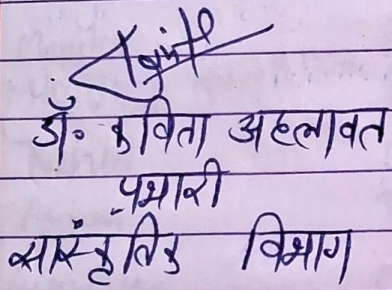 डॉ॰ कविता अहलावत
प्रभारी
सांस्कृतिक विभाग